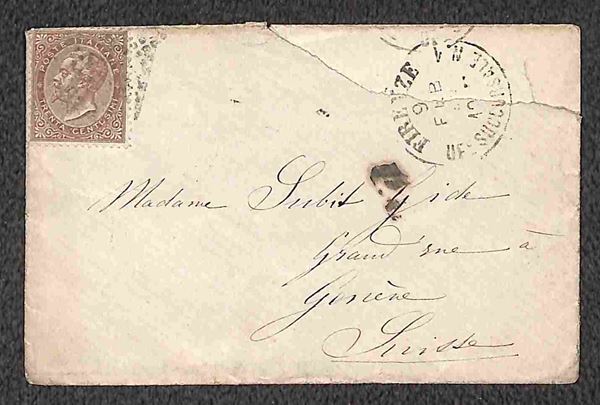 POSTE ITALIANE
TRENTA CENTESIMI
FIRENZE
SUCCURSALE N 1
9
FEB
Madame Subit Gide
Grand' rue à
Genève
Suisse